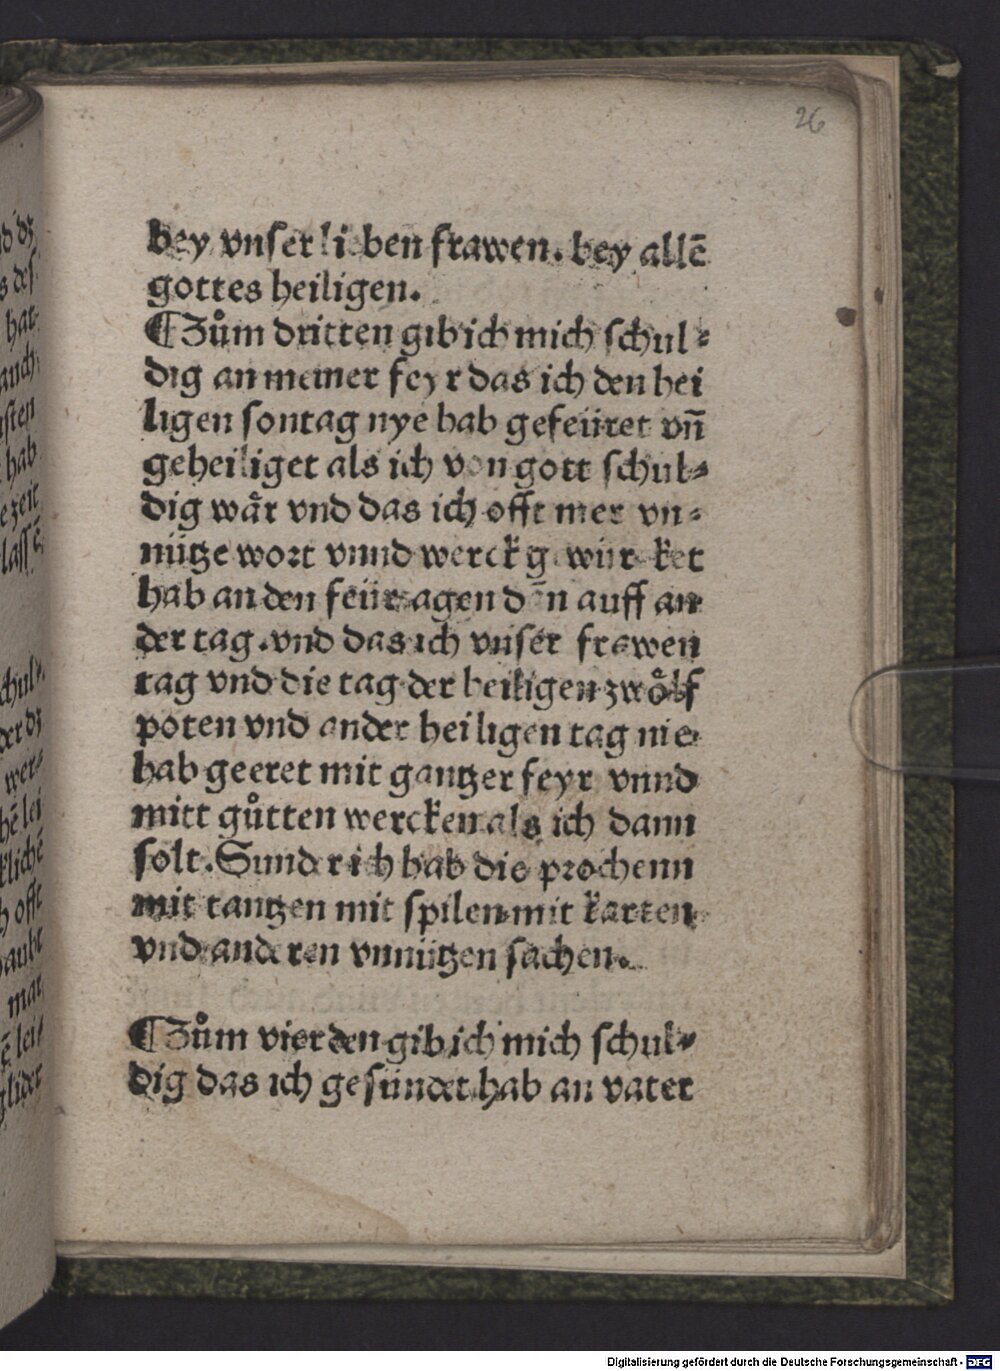 26
bey vnser lieben frawen. bey allē
gottes heiligen.
¶Zům dritten gib ich mich schul⸗
dig an meiner feyr das ich den hei
ligen sontag nye hab gefeüret vñ
geheiliget als ich von gott schul⸗
dig wår vnd das ich offt mer vn⸗
nütze wort vnnd werck gewürcket
hab an den feürtagen dān auff an
der tag. vnd das ich vnser frawen
tag vnd die tag der heiligen zwőlf
poten vnd ander heiligen tag nie
hab geeret mit gantzer feyr vnnd
mitt gůtten wercken als ich dann
solt. Sunder ich hab die prochenn
mit tantzen mit spilen mit karten
vnd anderen vnnützen sachen.
¶Zům vierden gib ich mich schul⸗
dig das ich gesündet hab an vater
Digitalisierung gefördert durch die Deutsche Forschungsgemeinschaft - DFG